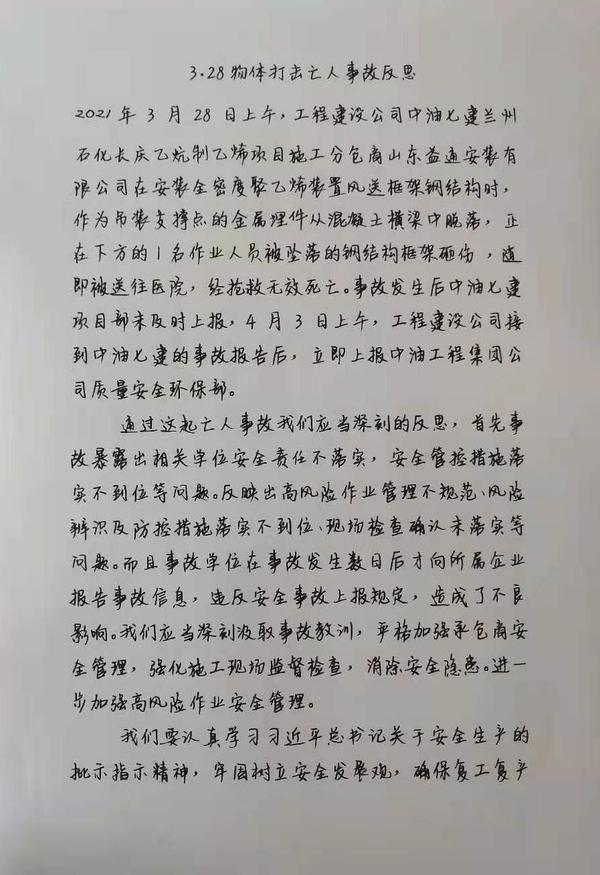 3·28物体打击亡人事故反思
2021年3月28日上午，工程建设公司中油七建兰州
石化长庆乙烷制乙烯项目施工分包商山东益通安装有
限公司在安装全密度聚乙烯装置风送框架钢结构时，
作为吊装支撑点的金属埋件从混凝土横梁中脱落，正
在下方的1名作业人员被坠落的钢结构框架砸伤，随
即被送往医院，经抢救无效死亡。事故发生后中油七建
项目部未及时上报，4月3日上午，工程建设公司接
到中油七建的事故报告后，立即上报中油工程集团公
司质量安全环保部。
通过这起亡人事故我们应当深刻的反思，首先事
故暴露出相关单位安全责任不落实，安全管控措施落
实不到位等问题。反映出高风险作业管理不规范、风险
辨识及防控措施落实不到位、现场检查确认未落实等
问题。而且事故单位在事故发生数日后才向所属企业
报告事故信息，违反安全事故上报规定，造成了不良
影响。我们应当深刻汲取事故教训，严格加强承包商安
全管理，强化施工现场监督检查，消除安全隐患。进一
步加强高风险作业安全管理。
我们要认真学习习近平总书记关于安全生产的
批示指示精神，牢固树立安全发展观，确保复工复产